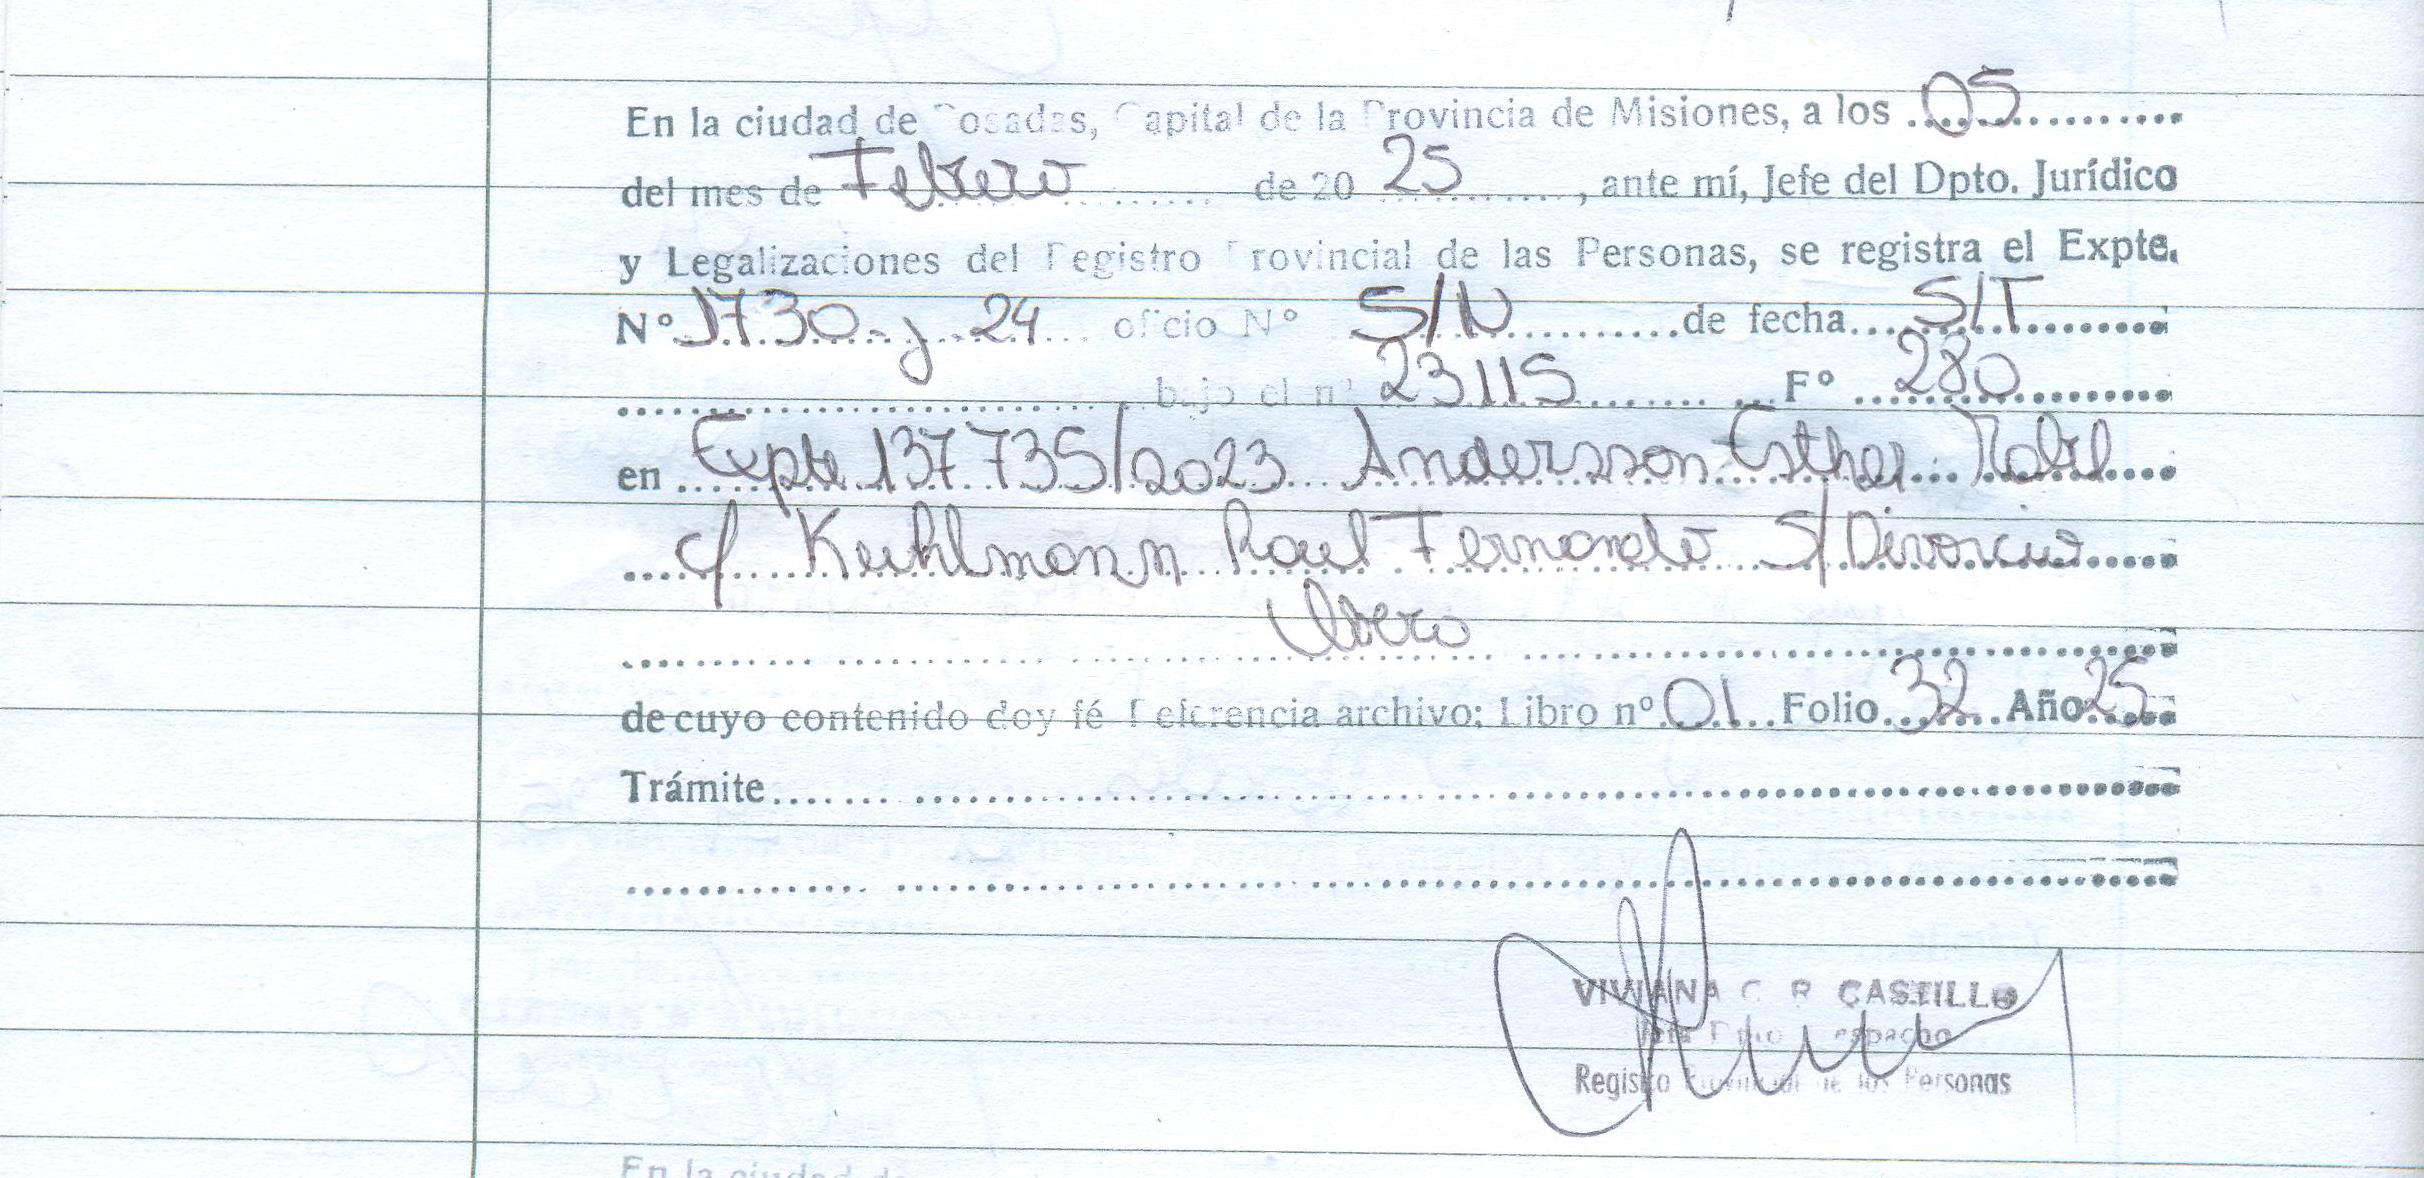 En la ciudad de Posadas, Capital de la Provincia de Misiones, a los 05
del mes de Febrero de 20 25, ante mí, Jefe del Dpto. Jurídico
y Legalizaciones del Registro Provincial de las Personas, se registra el Expte.
Nº 1730-j-24 oficio Nº S/N de fecha S/T
bajo el nº 23115 Fº 280
en Expte 137735/2023 Andersson Esther Mabel
c/ Kuhlmann Raul Fernando S/ Divorcio
Obero
de cuyo contenido doy fé Referencia archivo; Libro nº 01 Folio 32 Año 25
Trámite
VIVIANA C. R. CASTILLO
Jefa Dpto Despacho
Registro Provincial de las Personas
En la ciudad de